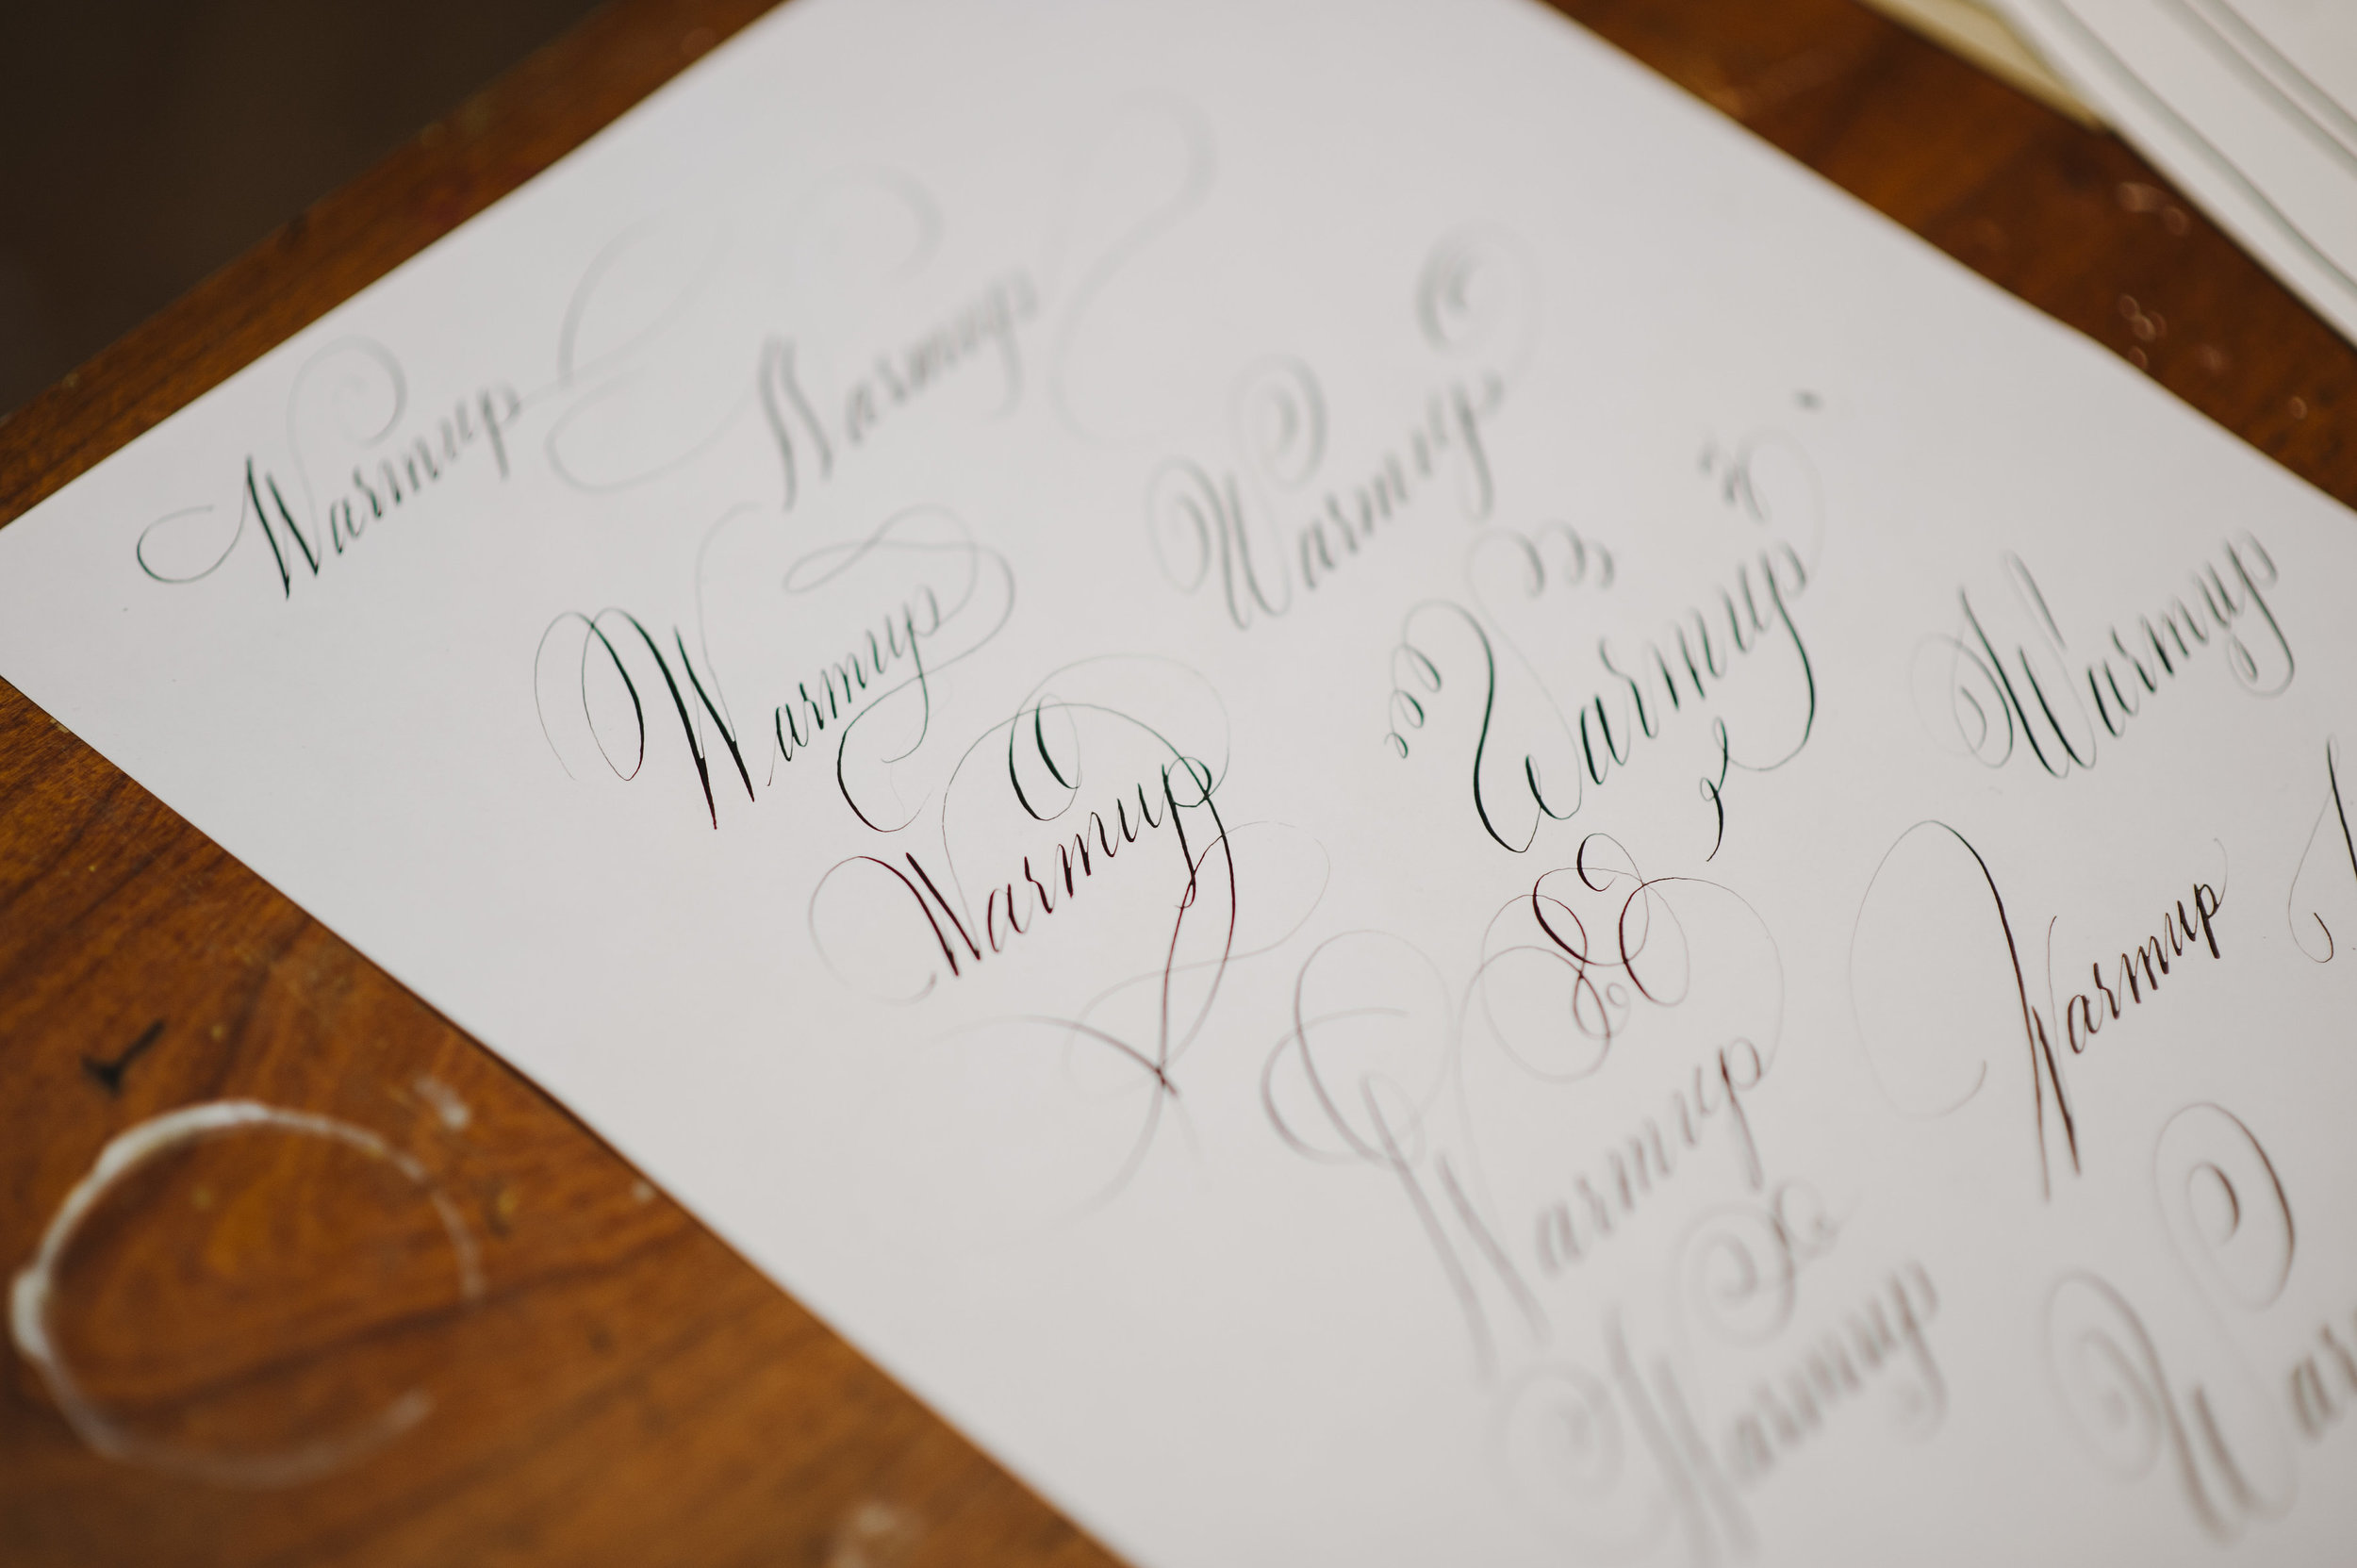 Warmup
Warmup
Warmup
Warmup
Warmup
Warmup
Warmup
Warmup
Warmup
Warmup
War